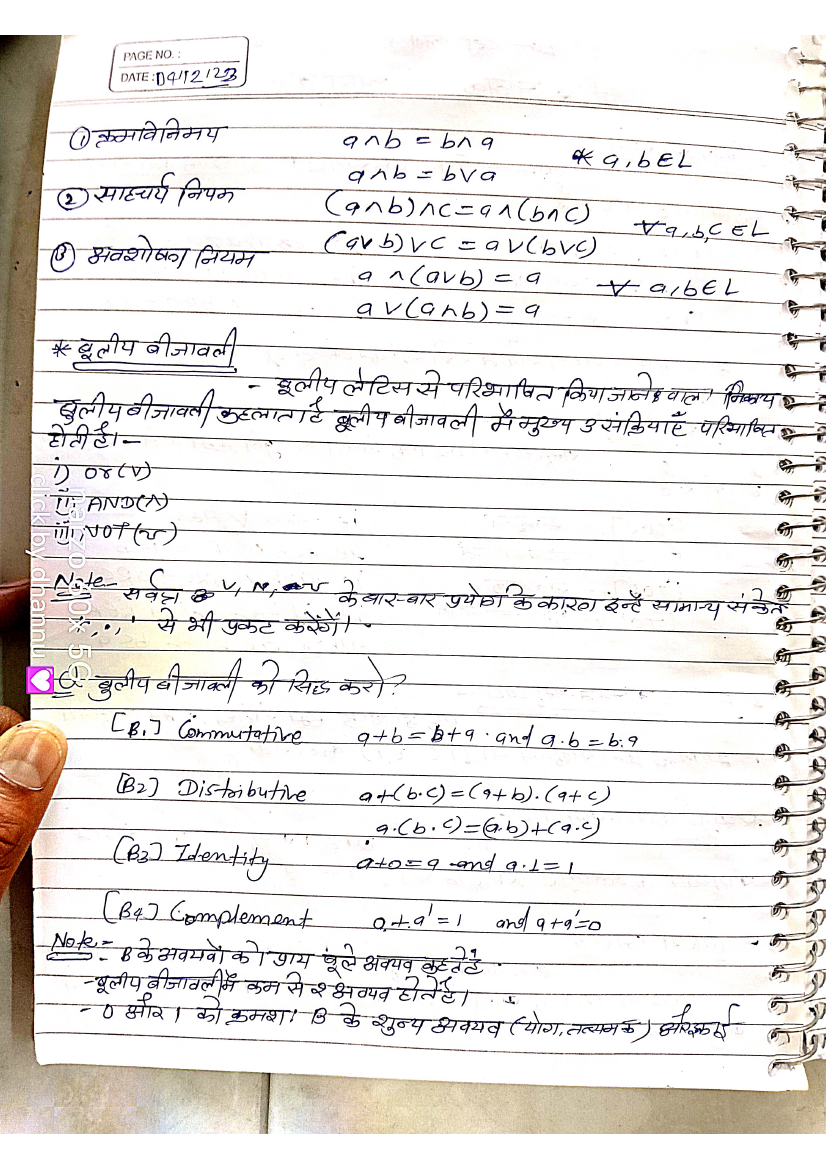 PAGE NO. :
DATE: 04/12/23
① क्रमविनिमय a∧b = b∧a
a∧b = b∨a ∀ a,b∈L
② साहचर्य नियम (a∧b)∧c = a∧(b∧c)
(a∨b)∨c = a∨(b∨c) ∀ a,b,c ∈ L
③ अवशोषण नियम
a∧(a∨b) = a ∀ a,b∈L
a∨(a∧b) = a
* बूलीय बीजावली
- बूलीय लेटिस से परिभाषित किया जाने वाला निकाय
बुलीय बीजावली कहलाता है बूलीय बीजावली में मुख्य 3 संक्रियाएँ परिभाषित
होती है।-
i) Or (∨)
ii) AND(∧)
iii) NOT (~)
Note- सर्वत्र ∨, ∧, ~ के बार-बार प्रयोग कि कारण इन्हें सामान्य संकेत
+, ., ' से भी प्रकट करेंगें।
Q- बुलीय बीजावली को सिद्ध करो?
[B1] Commutative a+b = b+a . and a.b = b.a
[B2] Distributive a+(b.c) = (a+b).(a+c)
a.(b.c) = (a.b)+(a.c)
[B3] Identity a+0 = a and a.1 = 1
[B4] Complement a+a' = 1 and a+a' = 0
Note- - B के अवयवों को प्राय बूले अवयव कहते है
- बूलीय बीजावली में कम से 2 अवयव होते है।
- 0 और 1 को क्रमश: B के शुन्य अवयव (योग, तत्समक) और इकाई
realme 10 5G
click by dhannu